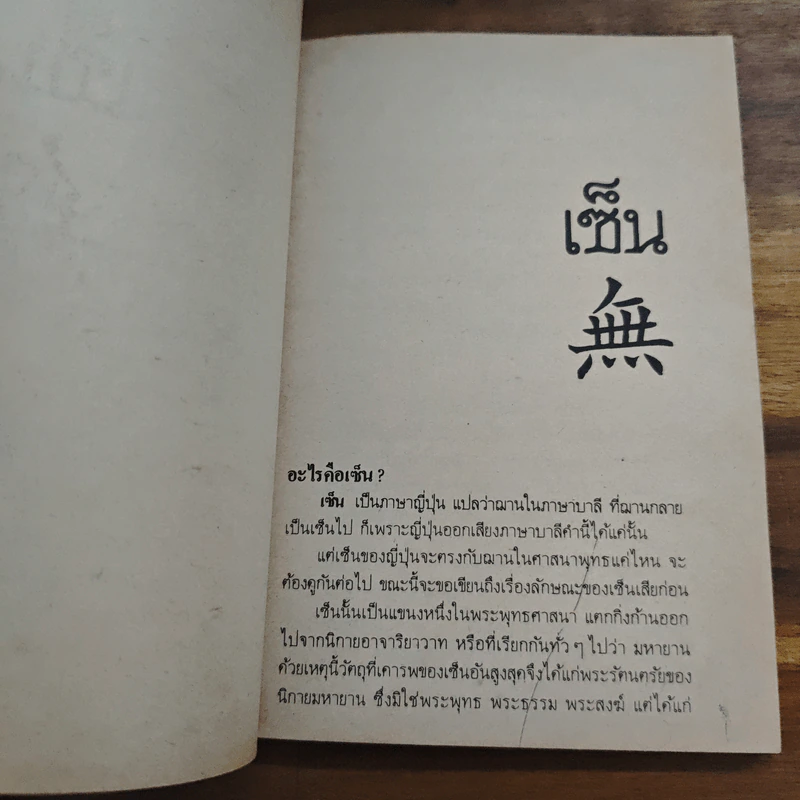 เซ็น
無
อะไรคือเซ็น ?
เซ็น เป็นภาษาญี่ปุ่น แปลว่าฌานในภาษาบาลี ที่ฌานกลาย
เป็นเซ็นไป ก็เพราะญี่ปุ่นออกเสียงภาษาบาลีคำนี้ได้แค่นั้น
แต่เซ็นของญี่ปุ่นจะตรงกับฌานในศาสนาพุทธแค่ไหน จะ
ต้องดูกันต่อไป ขณะนี้จะขอเขียนถึงเรื่องลักษณะของเซ็นเสียก่อน
เซ็นนั้นเป็นแขนงหนึ่งในพระพุทธศาสนา แตกกิ่งก้านออก
ไปจากนิกายอาจาริยาวาท หรือที่เรียกกันทั่ว ๆ ไปว่า มหายาน
ด้วยเหตุนี้วัตถุที่เคารพของเซ็นอันสูงสุดจึงได้แก่พระรัตนตรัยของ
นิกายมหายาน ซึ่งมิใช่พระพุทธ พระธรรม พระสงฆ์ แต่ได้แก่